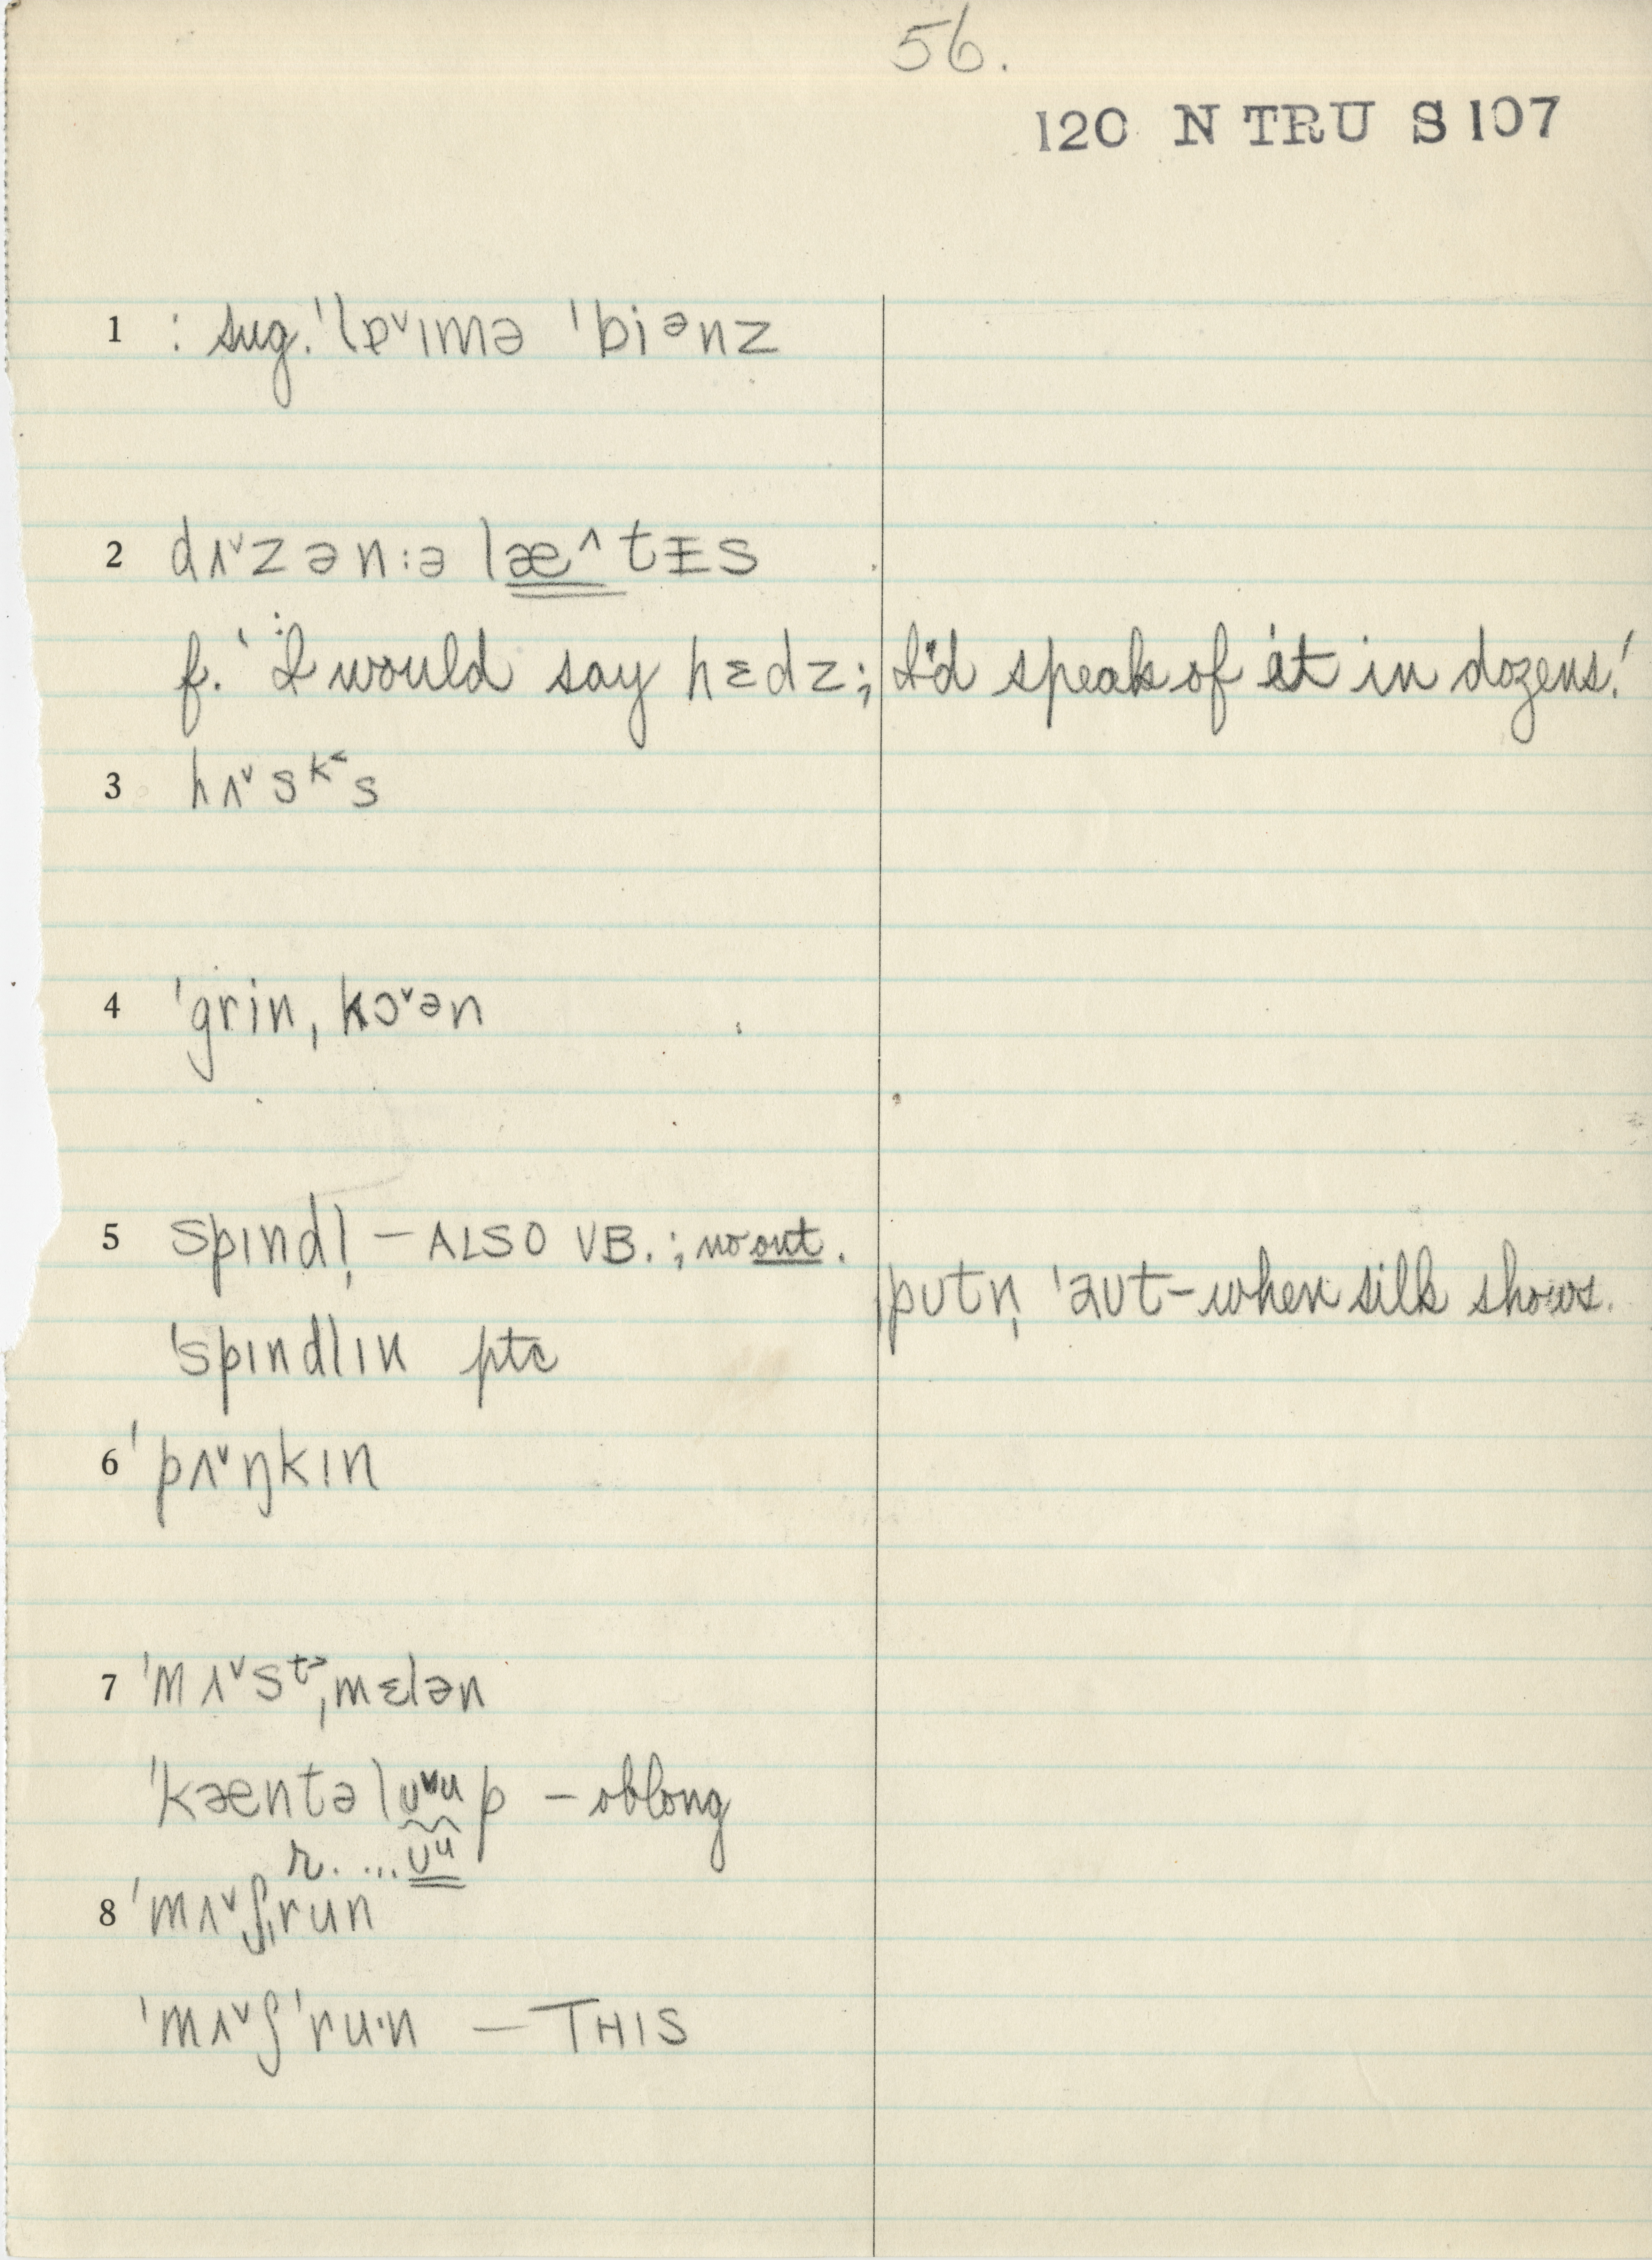 56.
120 N TRU S 107
1 : sug. ˈlɐ˅ɪmə ˈbiᵊnz
2 dʌ˅zən:ə læ˄tɪ̵s
f. ' I would say hɛdz; I'd speak of it in dozens.'
3 hʌ˅sᵏ˂s
4 ˈgrinˌkɔ˅ən
5 spɪndl̩ – ALSO VB.; no out.
ˌputn̩ ˈaut – when silk shows.
ˈspɪndlɪn ptc
6 ˈpʌ˅ŋkɪn
7 ˈmʌ˅sᵗ˃ˌmɛlən
ˈkæntəlʊ˅up – oblong
r. ...ʊᵘ
8 ˈmʌ˅ʃˌrun
ˈmʌ˅ʃˈru·n – THIS